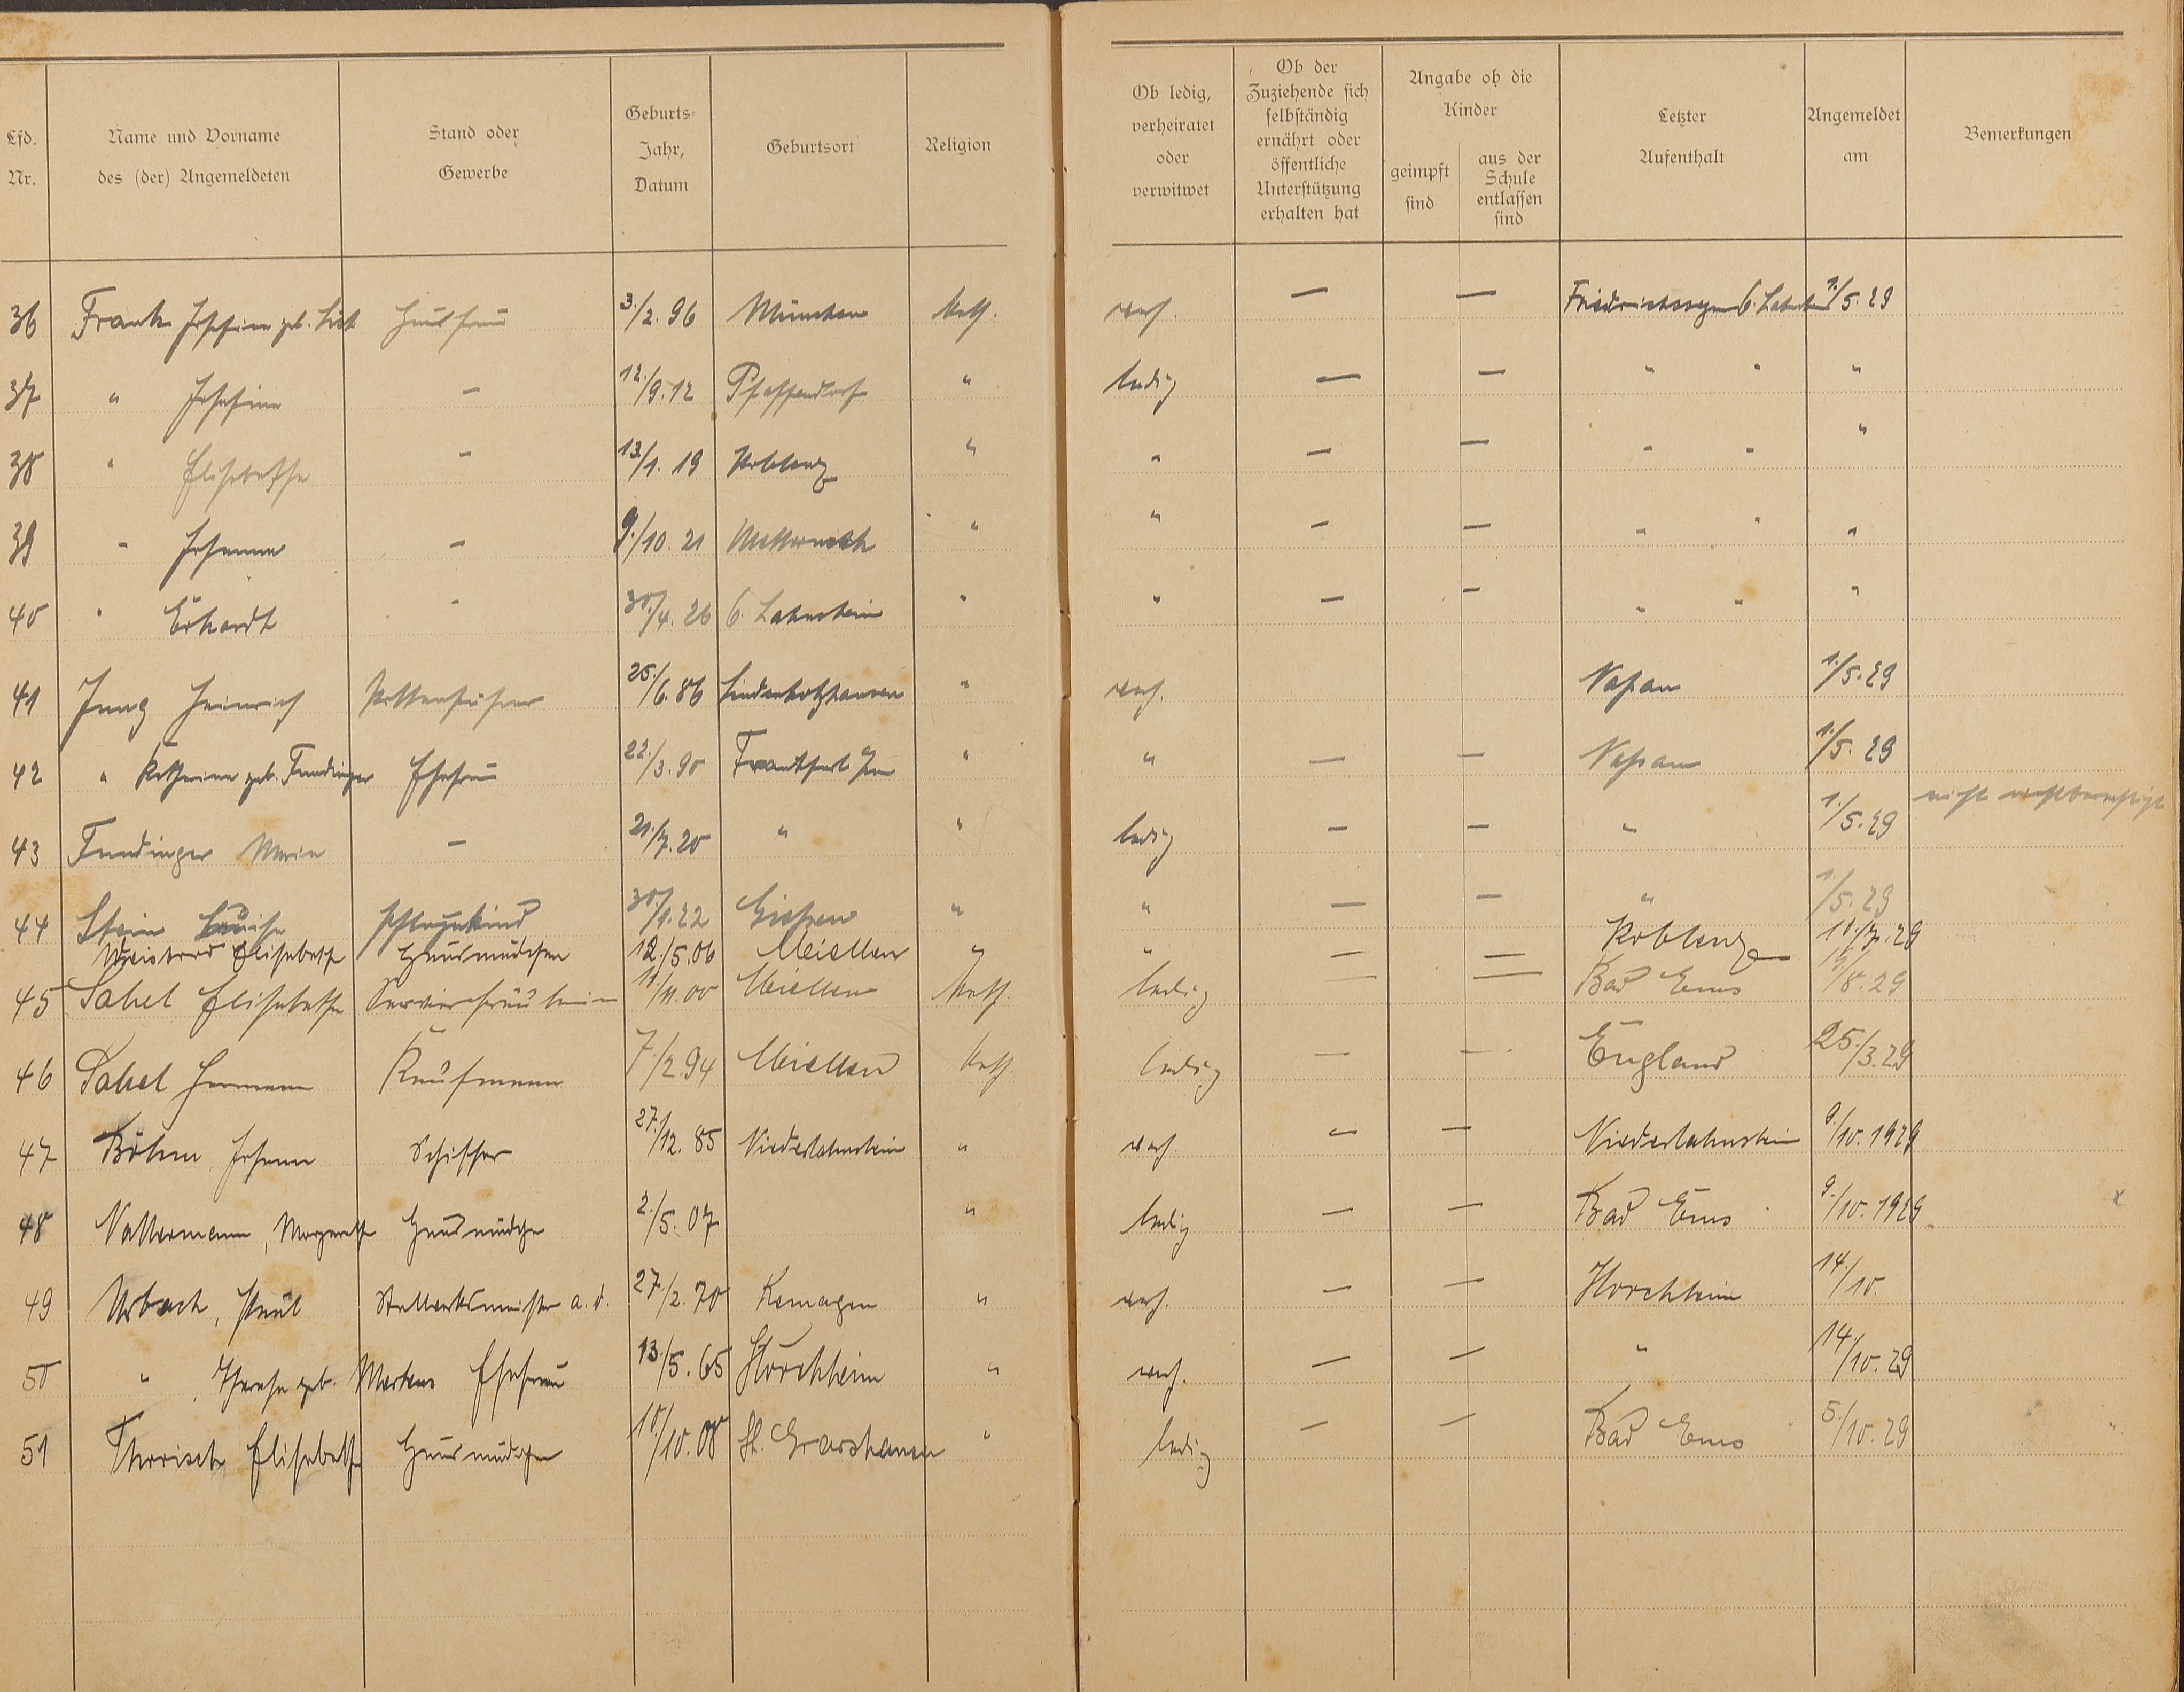 Lfd. Nr.
Name und Vorname des (der) Angemeldeten
Stand oder Gewerbe
Geburts-Jahr, Datum
Geburtsort
Religion
Ob ledig, verheiratet oder verwitwet
Ob der Zuziehende sich selbständig ernährt oder öffentliche Unterstützung erhalten hat
Angabe ob die Kinder
geimpft sind
aus der Schule entlassen sind
Letzter Aufenthalt
Angemeldet am
Bemerkungen
36 Frank Josefine geb. Hausfrau 3./2. 96 München kath. verh. — — 1./5. 29
37 " Josefine — 12./9. 12 Pfaffendorf " ledig — — " " "
38 " Elisabetha — 13./1. 19 Koblenz " " — — " " "
39 " Johanna — 9./10. 21 Metternich " " — — " " "
40 " Erhardt - 30./4. 26 O. Lahnstein " " — — " " "
41 Jung Heinrich Rottenführer 25./6. 86 Lindenholzhausen " verh. Nassau 1./5. 29
42 " Katharina geb. Fundinger Ehefrau 22./3. 90 Frankfurt " " — — Nassau 1./5. 29
43 Fundinger Maria — 21./7. 20 " " ledig — — " 1./5. 29 nicht
44 Stein Luise Pflegekind 30./1. 22 Giessen " " — — " 1./5. 29
Elisabeth Hausmädchen 12./5. 06 Miellen " " — — Koblenz 10./7. 29
45 Sabel Elisabetha Servierfräulein 11./11. 00 Miellen kath. ledig — — Bad Ems 15./8. 29
46 Sabel Hermann Kaufmann 7./2. 94 Miellen kath. ledig — — England 25./3. 29
47 Böhm Johann Schiffer 27./12. 85 Niederlahnstein " verh. — — Niederlahnstein 9./10. 1929
48 Nattermann, Margareth Hausmädchen 2./5. 07 " ledig — — Bad Ems 9./10. 1929 x
49 Urbach, Paul Stellwerksmeister a. d. 27./2. 70 Remagen " verh. — — Horchheim 14./10.
50 " , Therese geb. Mertens Ehefrau 13./5. 65 Horchheim " verh. — — " 14./10. 29
51 Elisabeth Hausmädchen 10./10. 08 St. Goarshausen " ledig — — Bad Ems 5./10. 29